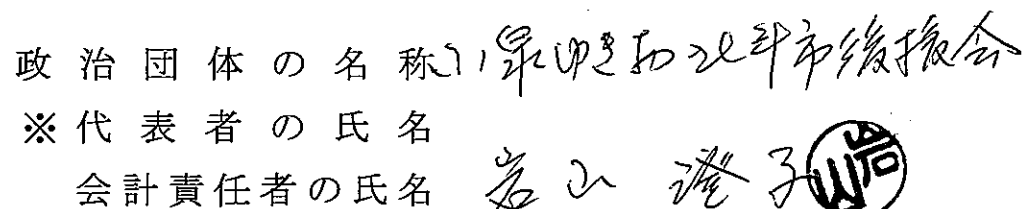 政治団体の名称 小泉ゆきお北斗市後援会
※代表者の氏名
会計責任者の氏名 岩山 澄子 岩山